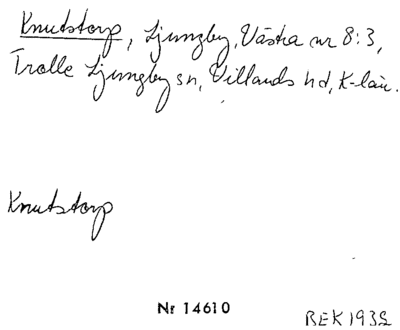 Knutstorp, Ljungby, Västra nr 8:3,
Trolle Ljungby sn, Villands hd, K-län.
Knutstorp
Nr 14610
BEK 1932